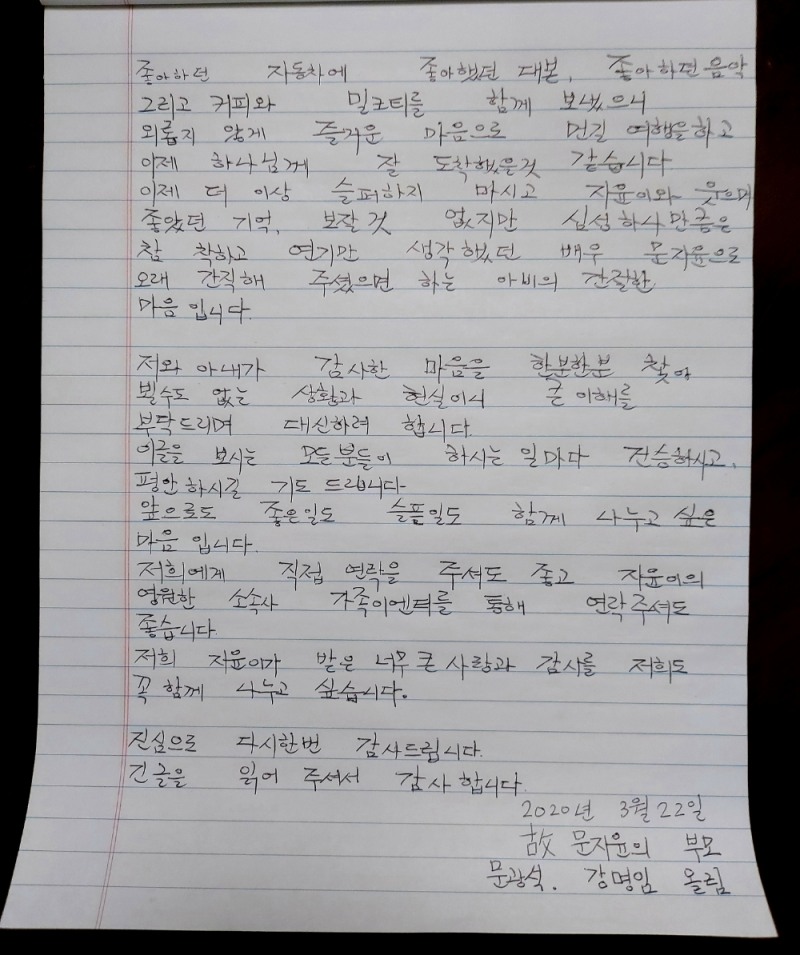 좋아하던 자동차에 좋아했던 대본, 좋아하던 음악
그리고 커피와 밀크티를 함께 보냈으니
외롭지 않게 즐거운 마음으로 먼길 여행을 하고
이제 하나님께 잘 도착했을것 같습니다
이제 더 이상 슬퍼하지 마시고 자윤이와 웃으며
좋았던 기억, 보잘것 없지만 심성 하나 만큼은
참 착하고 연기만 생각했던 배우 문자윤으로
오래 간직해 주셨으면 하는 아비의 간절한
마음 입니다.
저와 아내가 감사한 마음을 한분한분 찾아
뵐수도 없는 상황과 현실이니 큰 이해를
부탁드리며 대신하려 합니다.
이글을 보시는 모든 분들이 하시는 일마다 건승하시고,
평안하시길 기도 드립니다
앞으로도 좋은일도 슬픔일도 함께 나누고 싶은
마음 입니다.
저희에게 직접 연락을 주셔도 좋고 자윤이의
영원한 소속사 가족이엔티를 통해 연락주셔도
좋습니다
저희 자윤이가 받은 너무 큰 사랑과 감사를 저희도
꼭 함께 나누고 싶습니다.
진심으로 다시한번 감사드립니다.
긴글을 읽어 주셔서 감사 합니다
2020년 3월 22일
故 문자윤의 부모
문광석. 강명임 올림